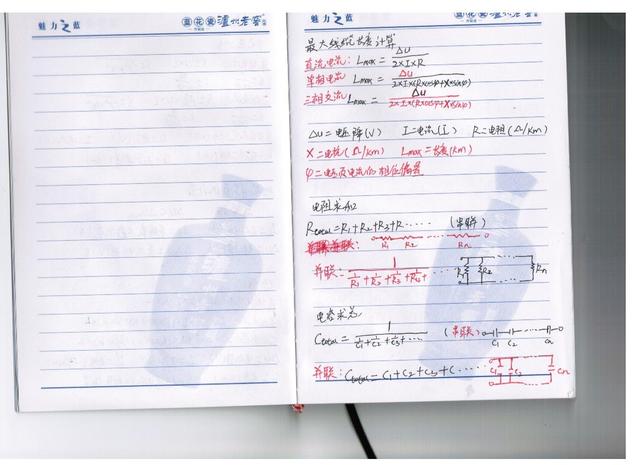 魅力之蓝
蓝花瓷 泸州老窖
魅力之蓝
蓝花瓷 泸州老窖
最大线缆长度计算
直流电流: Lmax = ΔU / 2×I×R
单相电流 Lmax = ΔU / 2×I×(R×cosφ+X×sinφ)
三相交流 Lmax = ΔU / 2×I×(R×cosφ+X×sinφ)
ΔU=电压降(V) I=电流(I) R=电阻(Ω/km)
X=电抗(Ω/km) Lmax=长度(km)
φ=电压及电流的相位偏差
电阻求和
Rtotal=R1+R2+R3+R····· (串联)
R1 R2 Rn
并联: 1 / 1/R1 + 1/R2 + 1/R3 + 1/R + ····
R1 R2 Rn
电容求和
Ctotal = 1 / 1/C1+1/C2+1/C3+···· (串联)
C1 C2 Cn
并联: Ctotal = C1+C2+C3+C·····
C1 C2 Cn